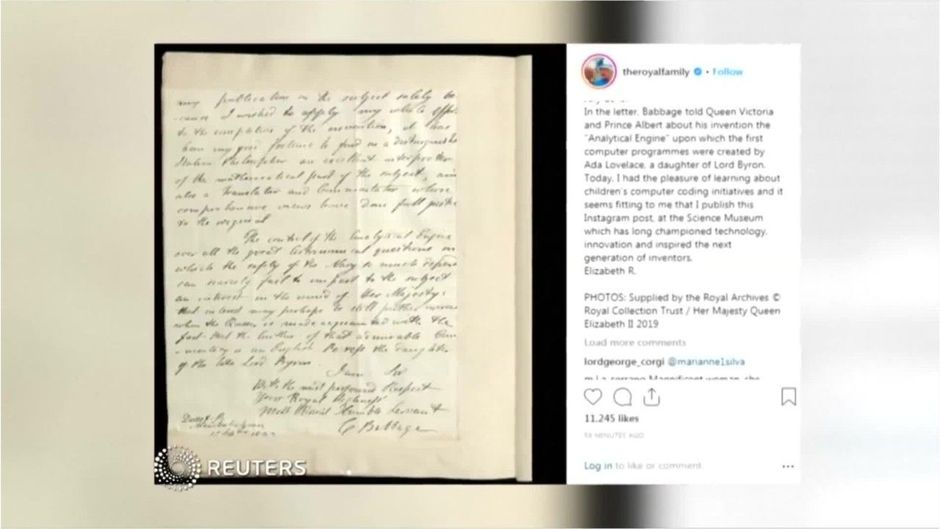 my publication on the subject solely be-
cause I wished to apply my whole
to the completion of the invention, it has
been my good fortune to find in a distinguished
Italian Philosopher an excellent interpreter
of the mathematical part of the subject, and
also a Translator and Commentator whose
comprehensive views have done full justice
to the original
The control of the Analytical Engine
over all the great Astronomical questions on
which the safety of the Navy so much depends
can scarcely fail to impart to the subject
an interest in the mind of Her Majesty:
that interest may perhaps be still further increased
when the Queen is made acquainted with the
fact that the author of that admirable Com-
-mentary is an English Peeress the daughter
of the late Lord Byron
I am Sir
With the most profound Respect
Your Royal Highness'
Most Obedient Humble Servant
C Babbage
theroyalfamily • Follow
In the letter, Babbage told Queen Victoria
and Prince Albert about his invention the
“Analytical Engine” upon which the first
computer programmes were created by
Ada Lovelace, a daughter of Lord Byron.
Today, I had the pleasure of learning about
children's computer coding initiatives and it
seems fitting to me that I publish this
Instagram post, at the Science Museum
which has long championed technology,
innovation and inspired the next
generation of inventors.
Elizabeth R.
PHOTOS: Supplied by the Royal Archives ©
Royal Collection Trust / Her Majesty Queen
Elizabeth II 2019
Load more comments
lordgeorge_corgi @marianne1silva
11,245 likes
MINUTES AGO
Log in to like or comment
REUTERS